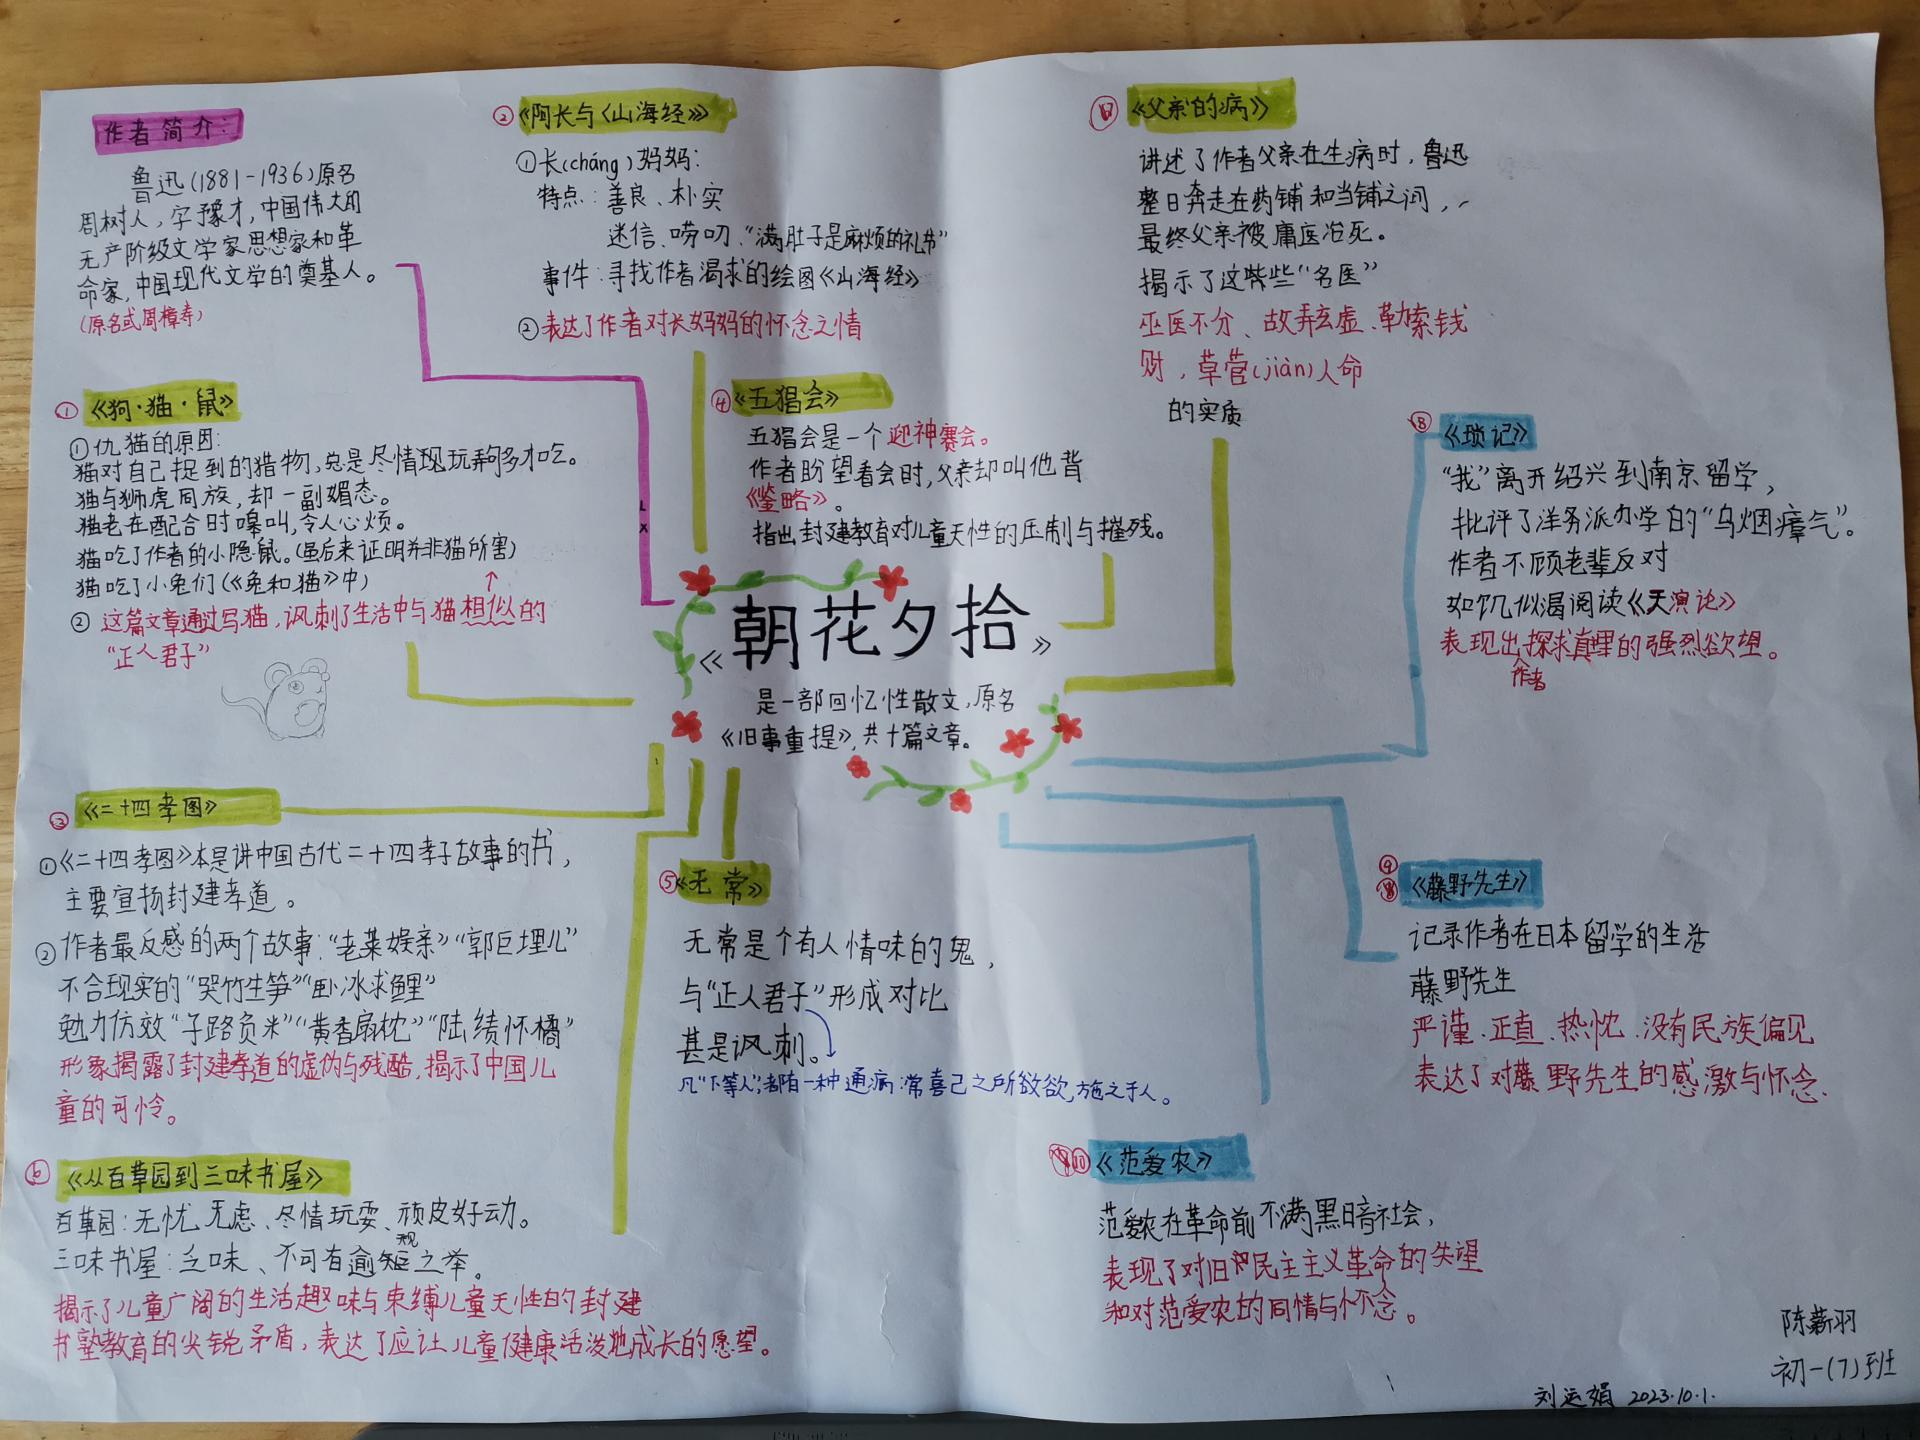 作者简介:
鲁迅(1881-1936)原名
周树人，字豫才，中国伟大的
无产阶级文学家思想家和革
命家，中国现代文学的奠基人。
(原名或周樟寿)
①《狗·猫·鼠》
①仇猫的原因:
猫对自己捉到的猎物，总是尽情玩弄够了才吃。
猫与狮虎同族，却一副媚态。
猫老在配合时嗥叫，令人心烦。
猫吃了作者的小隐鼠。(虽后来证明并非猫所害)
猫吃了小兔们(《兔和猫》中)
②这篇文章通过写猫，讽刺了生活中与猫相似的
“正人君子”
②《阿长与《山海经》》
①长(cháng)妈妈:
特点: 善良、朴实
迷信、唠叨、“满肚子是麻烦的礼节”
事件: 寻找作者渴求的绘图《山海经》
②表达了作者对长妈妈的怀念之情
④《五猖会》
五猖会是一个迎神赛会。
作者盼望看会时，父亲却叫他背
《鉴略》。
指出封建教育对儿童天性的压制与摧残。
《父亲的病》
讲述了作者父亲在生病时，鲁迅
整日奔走在药铺和当铺之间，
最终父亲被庸医治死。
揭示了这些“名医”
巫医不分、故弄玄虚、勒索钱
财，草菅(jiàn)人命
的实质
⑧《琐记》
“我”离开绍兴到南京留学，
批评了洋务派办学的“乌烟瘴气”。
作者不顾老辈反对
如饥似渴阅读《天演论》
表现出探求真理的强烈欲望。
作者
《朝花夕拾》
是一部回忆性散文，原名
《旧事重提》，共十篇文章。
③《二十四孝图》
①《二十四孝图》本是讲中国古代二十四孝子故事的书，
主要宣扬封建孝道。
②作者最反感的两个故事:“老莱娱亲”“郭巨埋儿”
不合现实的“哭竹生笋”“卧冰求鲤”
勉力仿效“子路负米”“黄香扇枕”“陆绩怀橘”
形象揭露了封建孝道的虚伪与残酷，揭示了中国儿
童的可怜。
⑤《无常》
无常是个有人情味的鬼，
与“正人君子”形成对比
甚是讽刺。
凡“下等人”，都有一种通病:常喜己之所欲欲，施之于人。
⑨《藤野先生》
记录作者在日本留学的生活
藤野先生
严谨、正直、热忱、没有民族偏见
表达了对藤野先生的感激与怀念.
⑥《从百草园到三味书屋》
百草园: 无忧无虑、尽情玩耍、顽皮好动。
三味书屋: 乏味、不可有逾矩之举。
规
揭示了儿童广阔的生活趣味与束缚儿童天性的封建
书塾教育的尖锐矛盾，表达了应让儿童健康活泼地成长的愿望。
⑩《范爱农》
范爱农在革命前不满黑暗社会，
表现了对旧民主主义革命的失望
和对范爱农的同情与怀念。
陈薪羽
初一(7)班
刘运娟 2023.10.1.